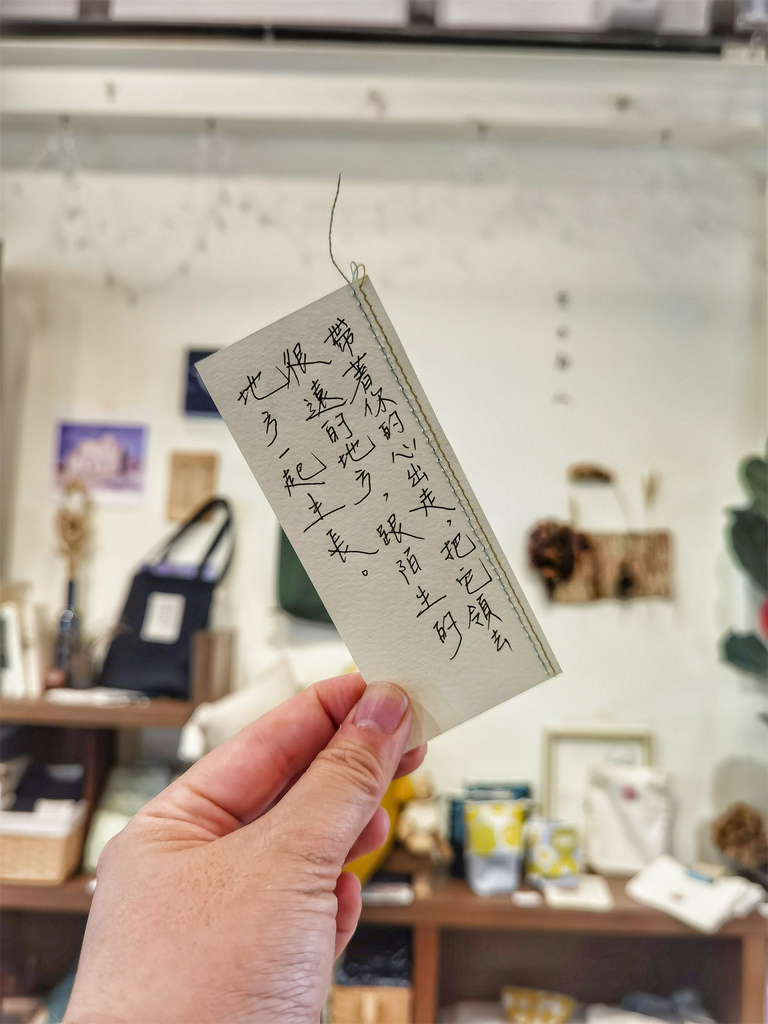 帶著你的心出走，把它領去
很遠的地方，跟陌生的
地方一起生長。